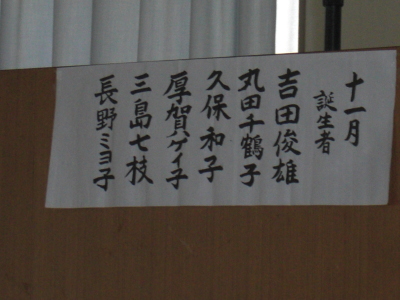 十一月
誕生者
吉田俊雄
丸田千鶴子
久保和子
厚賀ハゲイ子
三島七枝
長野ミヨ子